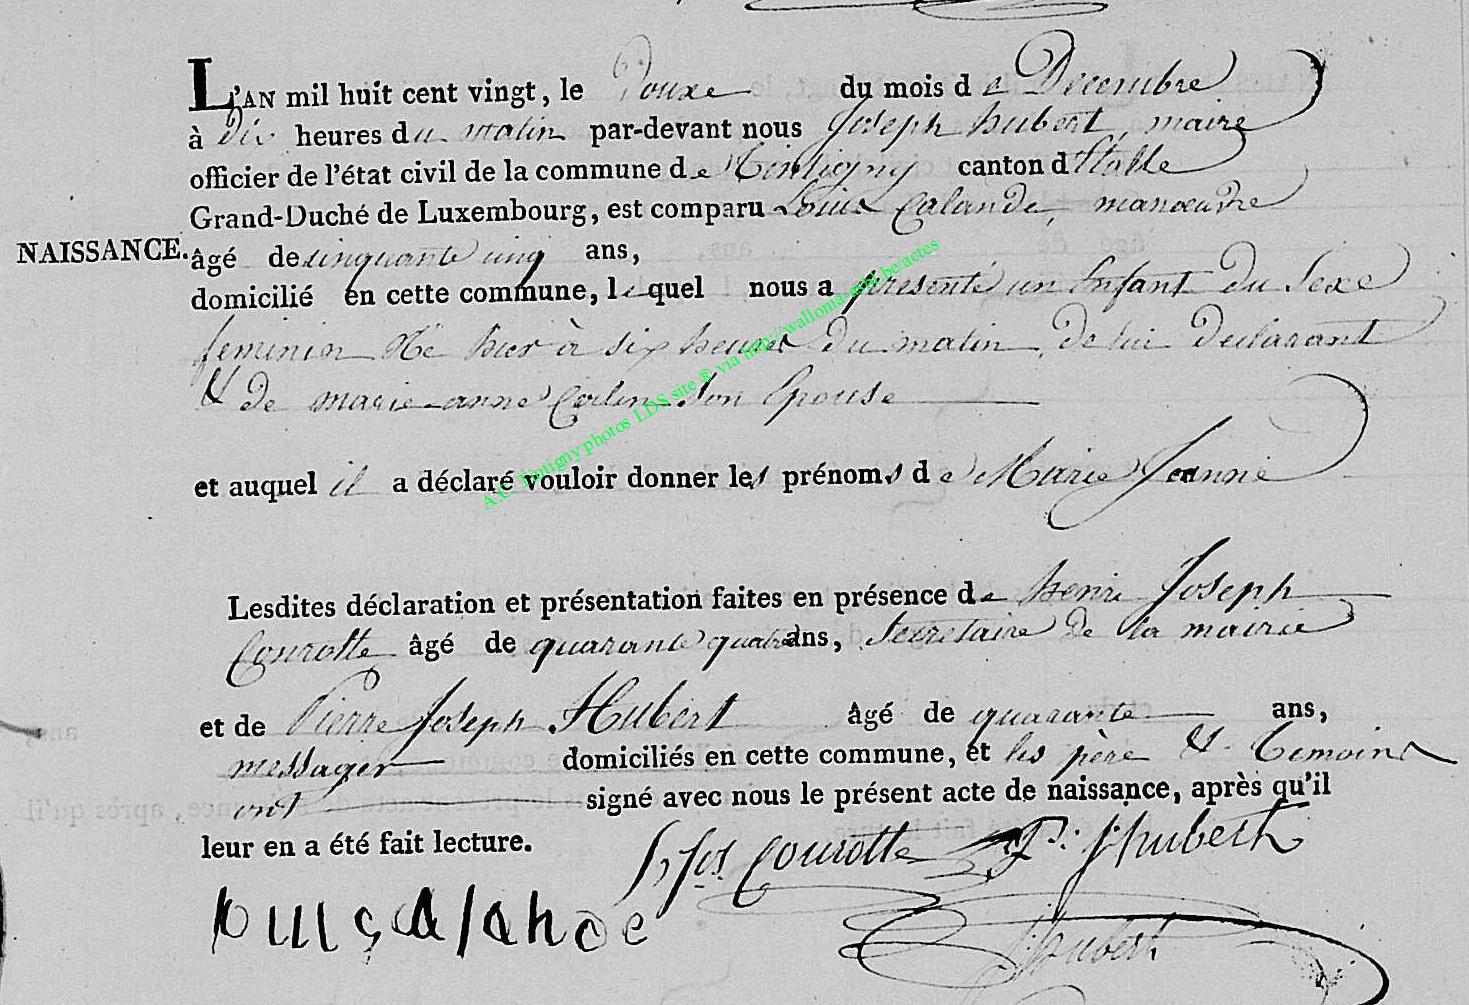 L'AN mil huit cent vingt, le Douze du mois de Decembre
à Dix heures du matin par-devant nous Joseph hubert, maire
officier de l'état civil de la commune de Tintigny canton d'Etalle
Grand-Duché de Luxembourg, est comparu Louis Calande, manœuvre
NAISSANCE. âgé de cinquante cinq ans,
domicilié en cette commune, lequel nous a presenté un Enfant du Sexe
feminin Né hier à six heures du matin, de lui déclarant
& de marie-anne Colin Son Epouse
et auquel il a déclaré vouloir donner les prénoms de Marie Jeanne
Lesdites déclaration et présentation faites en présence de henri Joseph
Courotte âgé de quarante quatre ans, Secretaire de la mairie
et de Pierre Joseph Hubert âgé de quarante ans,
messager domiciliés en cette commune, et les père & Temoins
ont signé avec nous le présent acte de naissance, après qu'il
leur en a été fait lecture.
h Jos Courotte P: J hubert
louis calande
J hubert
A.C. Tintigny photos LDS site ® via http://wallonia-asbl.be/actes